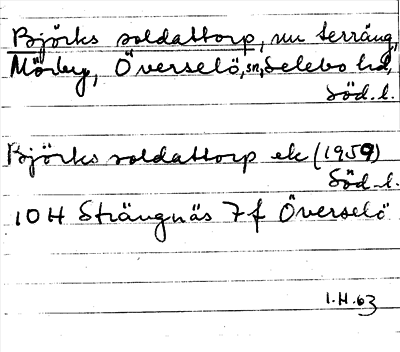 Björks soldattorp, nu terräng,
Mörby, Överselö, sn, Selebo hd,
Söd. l.
Björks soldattorp ek (1959)
Söd. l.
10H Strängnäs 7f Överselö
1.H.63